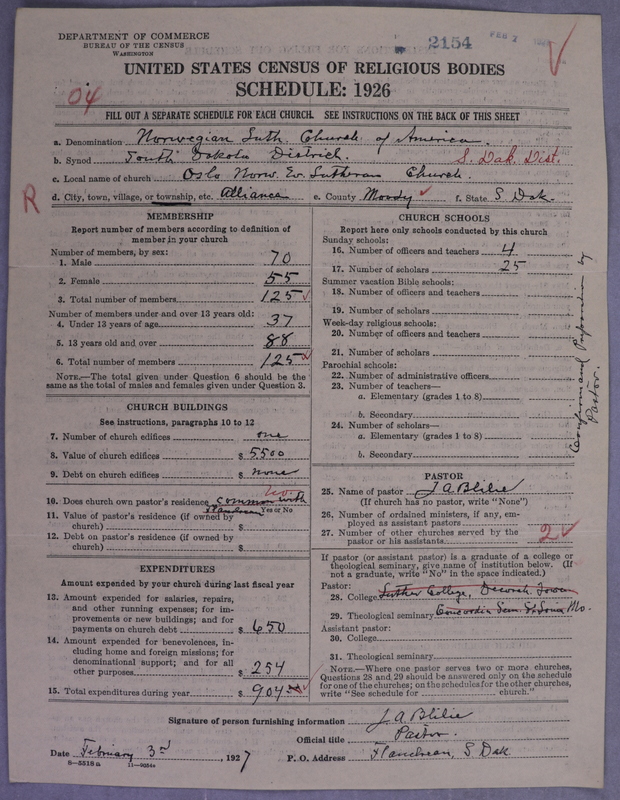 DEPARTMENT OF COMMERCE
BUREAU OF THE CENSUS
WASHINGTON
2154 FEB 7
UNITED STATES CENSUS OF RELIGIOUS BODIES
04
SCHEDULE: 1926
FILL OUT A SEPARATE SCHEDULE FOR EACH CHURCH. SEE INSTRUCTIONS ON THE BACK OF THIS SHEET
a. Denomination Norwegian Luth. Church of America.
b. Synod South Dakota District. S. Dak. Dist.
c. Local name of church Oslo Norw. Ev. Lutheran Church.
R
d. City, town, village, or township, etc. Alliance e. County Moody f. State S Dak.
MEMBERSHIP
Report number of members according to definition of
member in your church
Number of members, by sex:
1. Male 70
2. Female 55
3. Total number of members 125
Number of members under and over 13 years old:
4. Under 13 years of age 37
5. 13 years old and over 88
6. Total number of members 125
NOTE.—The total given under Question 6 should be the
same as the total of males and females given under Question 3.
CHURCH BUILDINGS
See instructions, paragraphs 10 to 12
7. Number of church edifices one
8. Value of church edifices $ 5500
9. Debt on church edifices $ none
no
10. Does church own pastor's residence common with
Flandreau Yes or No
11. Value of pastor's residence (if owned by
church) $
12. Debt on pastor's residence (if owned by
church) $
EXPENDITURES
Amount expended by your church during last fiscal year
13. Amount expended for salaries, repairs,
and other running expenses; for im-
provements or new buildings; and for
payments on church debt $ 650
14. Amount expended for benevolences, in-
cluding home and foreign missions; for
denominational support; and for all
other purposes $ 254
15. Total expenditures during year $ 904
CHURCH SCHOOLS
Report here only schools conducted by this church
Sunday schools:
16. Number of officers and teachers 4
17. Number of scholars 25
Summer vacation Bible schools:
18. Number of officers and teachers
19. Number of scholars
Week-day religious schools:
20. Number of officers and teachers
21. Number of scholars
Parochial schools:
22. Number of administrative officers
23. Number of teachers—
a. Elementary (grades 1 to 8)
b. Secondary
24. Number of scholars—
a. Elementary (grades 1 to 8)
b. Secondary
by
Pastor.
PASTOR
25. Name of pastor J A Blilie
(If church has no pastor, write "None")
26. Number of ordained ministers, if any, em-
ployed as assistant pastors
27. Number of other churches served by the
pastor or his assistants 2
If pastor (or assistant pastor) is a graduate of a college or
theological seminary, give name of institution below. (If
not a graduate, write "No" in the space indicated.)
Pastor:
28. College Luther College, Decorah, Iowa
29. Theological seminary Concordia Sem. St. Louis Mo.
Assistant pastor:
30. College
31. Theological seminary
NOTE.—Where one pastor serves two or more churches,
Questions 28 and 29 should be answered only on the schedule
for one of the churches; on the schedules for the other churches,
write "See schedule for church."
Signature of person furnishing information J. A Blilie
Official title Pastor.
Date February 3rd, 1927 P. O. Address Flandreau, S Dak
8—5518a 11—9054